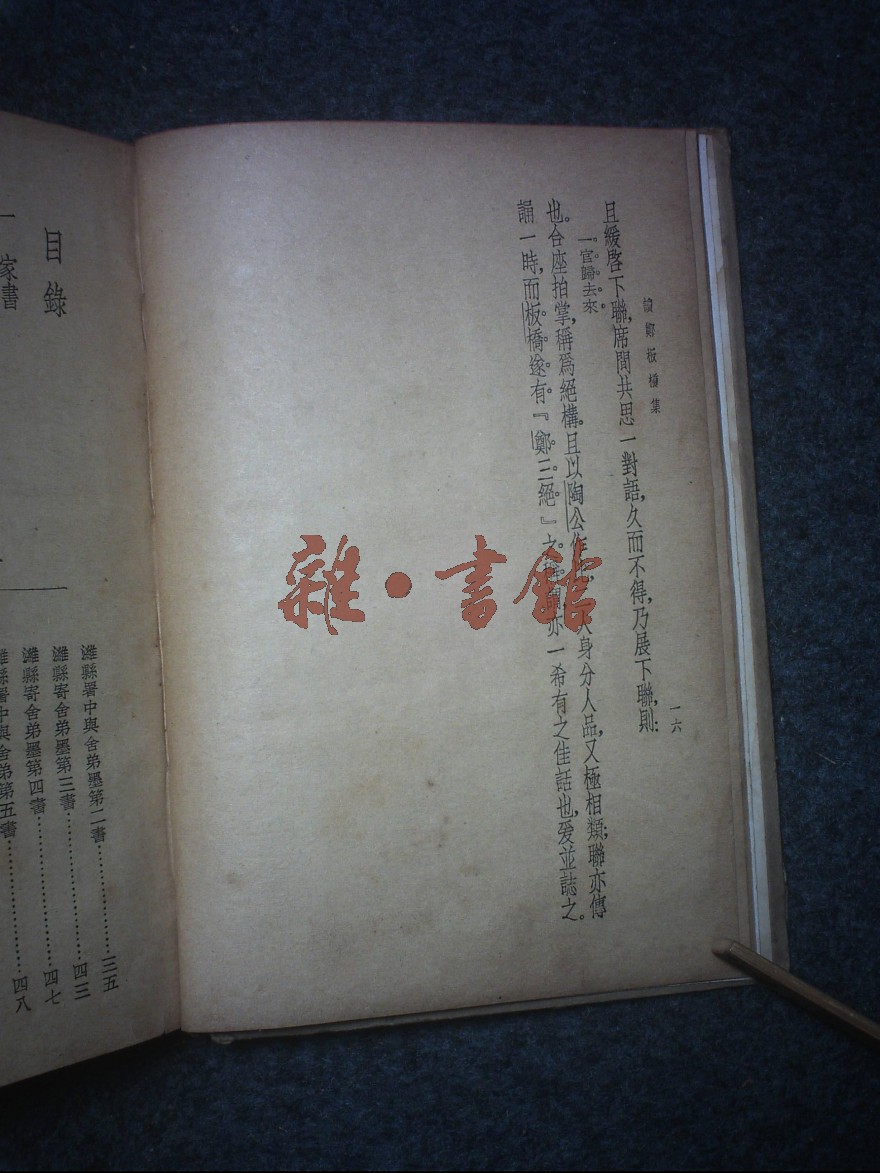 讀鄭板橋集
一六
且緩啓下聯，席間共思一對語，久而不得，乃展下聯，則：
一官歸去來。
也。合座拍掌，稱爲絕構。且以陶公 身分人品，又極相類；聯亦傳
誦一時，而板橋遂有『鄭三絕』之 亦一希有之佳話也，爰並誌之。
目錄
一 家書
濰縣署中與舍弟墨第二書…………三五
濰縣寄舍弟墨第三書…………四三
濰縣寄舍弟墨第四書…………四七
濰縣署中與舍弟第五書…………四八
雜·書館